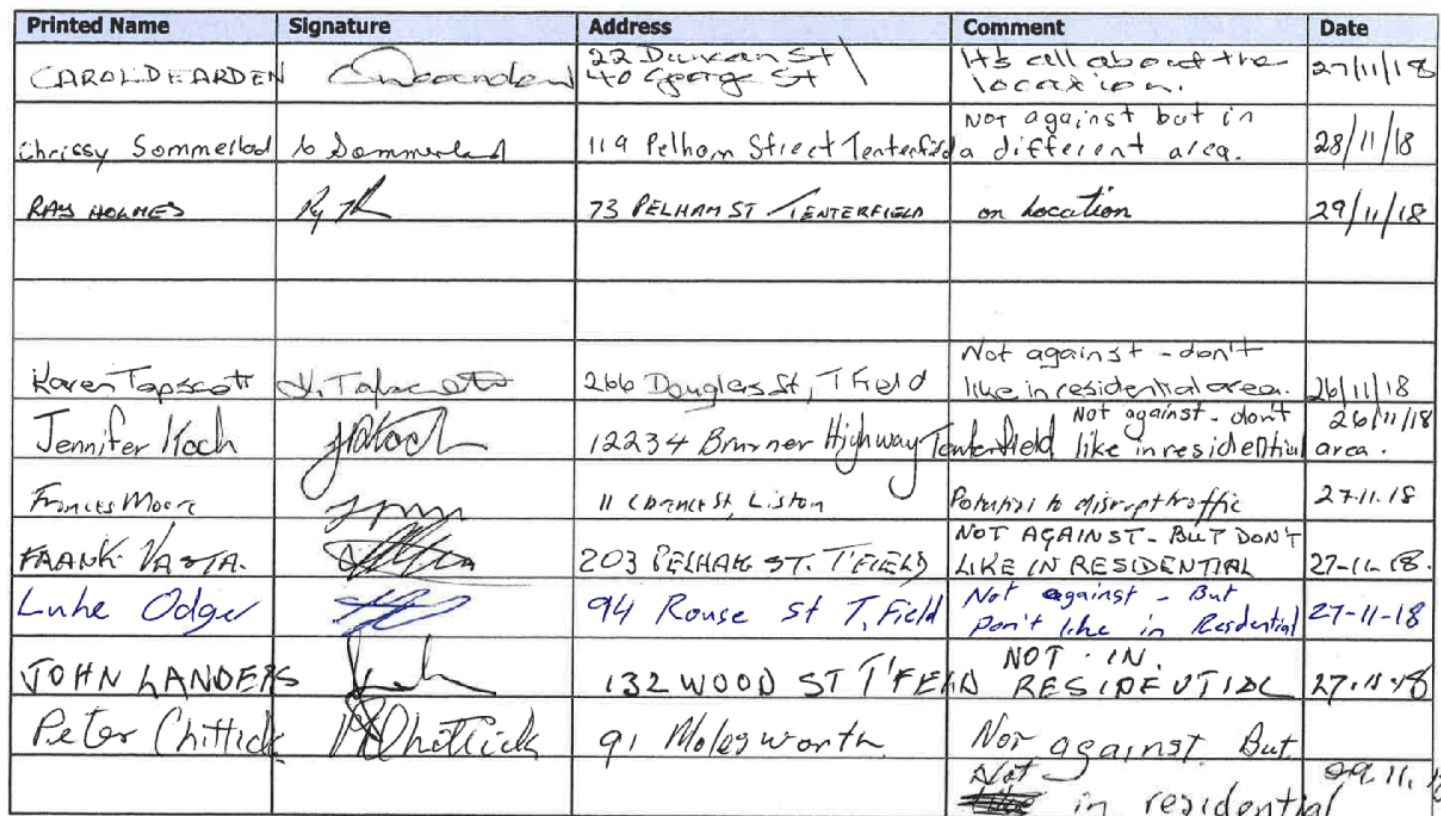 Printed Name Signature Address Comment Date
CAROL DEARDEN 22 Duncan St It's all about the 27/11/18
40 George St location.
Chrissy Sommerlad C Sommerlad 119 Pelham Street Tenterfield Not against but in 28/11/18
a different area.
RAY HOLMES 73 PELHAM ST TENTERFIELD on Location 29/11/18
Karen Tapscott K. Tapscott 266 Douglas St, T Field Not against - don't 26/11/18
like in residential area.
Jennifer Koch JAKoch 12234 Bruxner Highway Tenterfield Not against - don't 26/11/18
like in residential area.
Frances Moore 11 St, Liston Potential to disrupt traffic 27.11.18
FRANK VASTA. 203 PELHAM ST. T'FIELD NOT AGAINST - BUT DON'T 27-11-18.
LIKE IN RESIDENTIAL
Luke Odger 94 Rouse St T, Field Not against - But 27-11-18
Don't like in Residential
JOHN LANDERS 132 WOOD ST T'FELD NOT . IN. 27.11.18
RESIDENTIAL
Peter Chittick PChittick 91 Molesworth Not against But
Not in residential 29.11.18